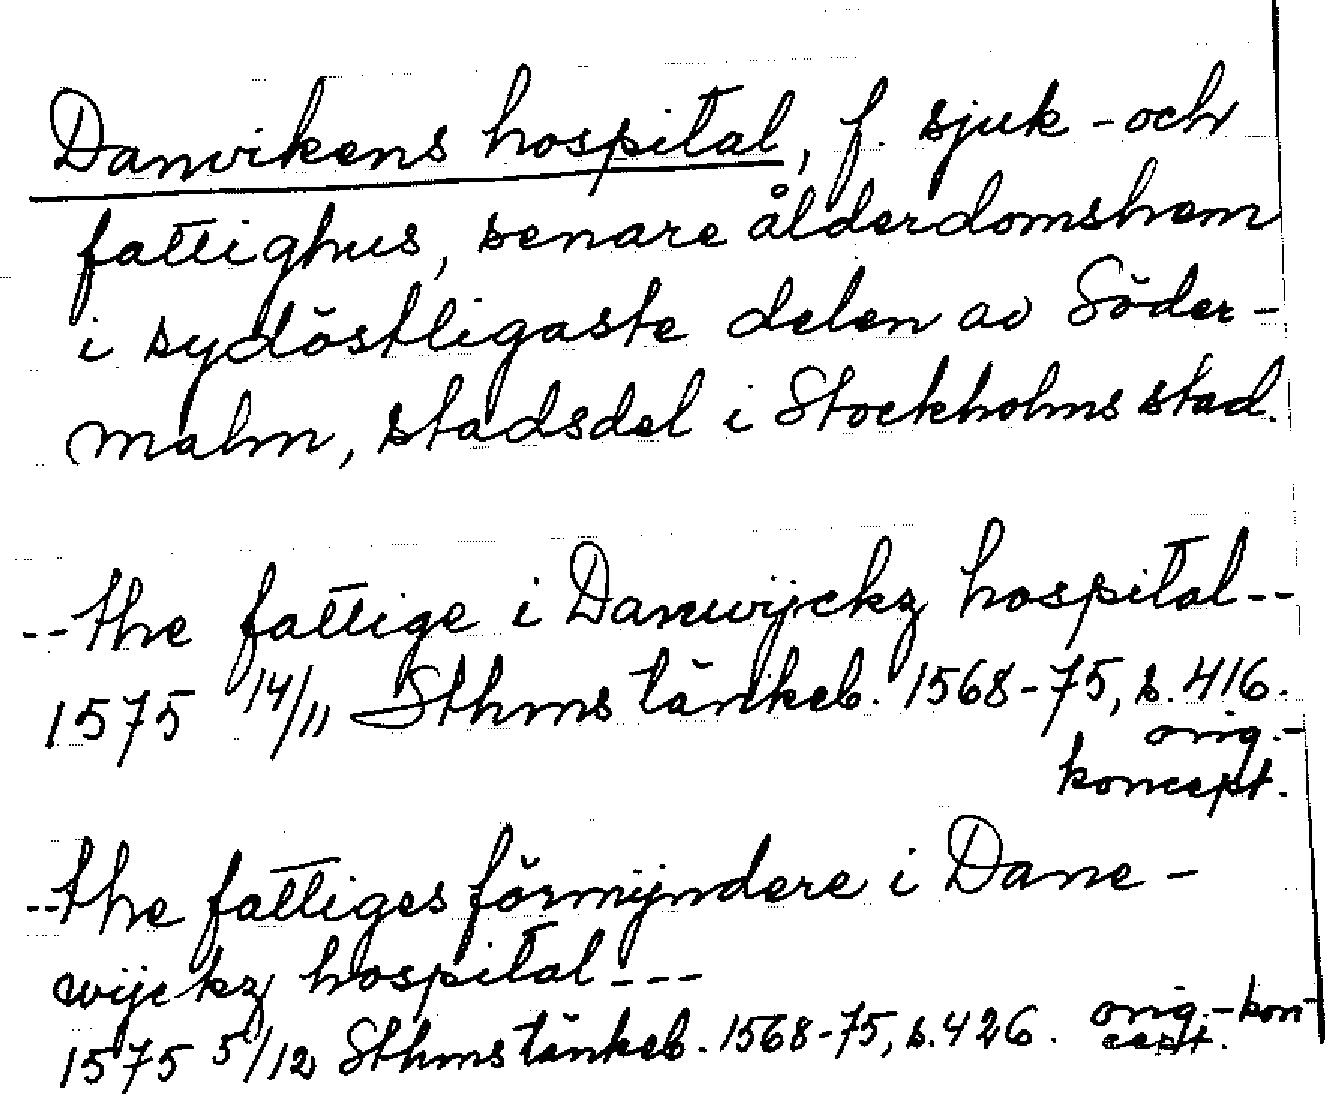 Danvikens hospital, f. sjuk- och
fattighus, senare ålderdomshem
i sydöstligaste delen av Söder-
malm, stadsdel i Stockholms stad.
--the fattige i Danwijckz hospital--
1575 14/11 Sthms tänkeb. 1568-75, s. 416.
orig.-
koncept.
--the fattiges förmijndere i Dane-
wijckz hospital---
1575 5/12 Sthms tänkeb. 1568-75, s. 426. orig.-kon
cept.